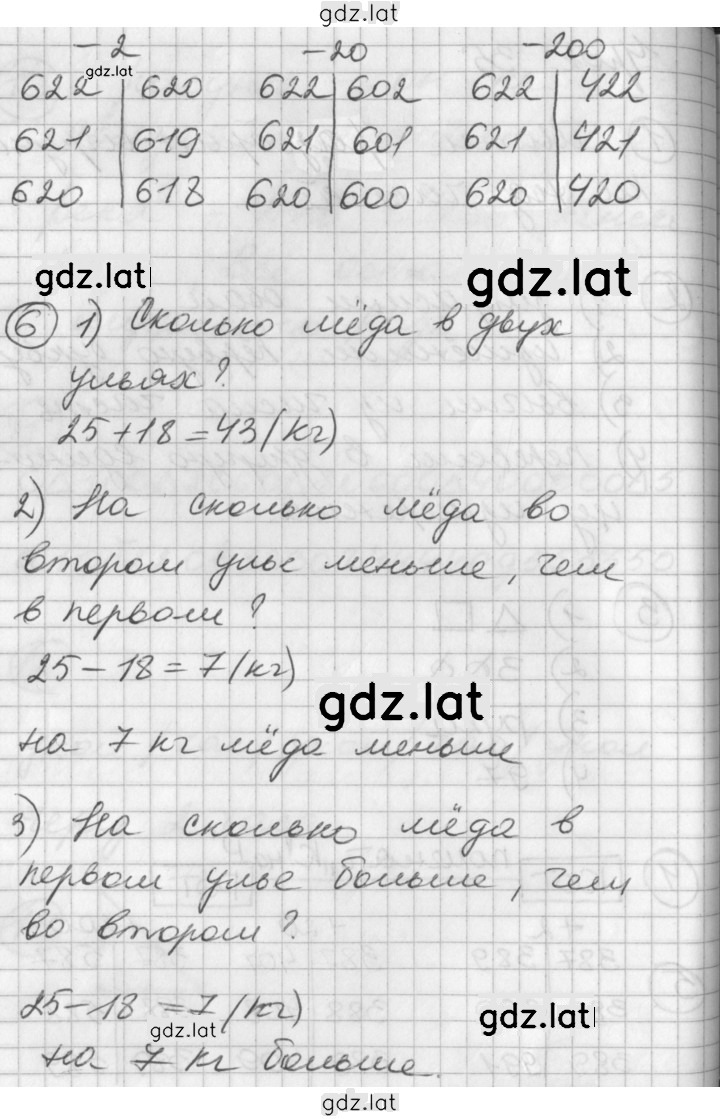 gdz.lat
-2 -20 -200
gdz.lat
622 | 620 622 | 602 622 | 422
621 | 619 621 | 601 621 | 421
620 | 618 620 | 600 620 | 420
gdz.lat gdz.lat
6 1) Сколько мёда в двух
ульях?
25+18=43(кг)
2) На сколько мёда во
втором улье меньше, чем
в первом?
25-18=7(кг)
gdz.lat
на 7 кг мёда меньше
3) На сколько мёда в
первом улье больше, чем
во втором?
25-18=7(кг)
gdz.lat gdz.lat
на 7 кг больше.
gdz.lat